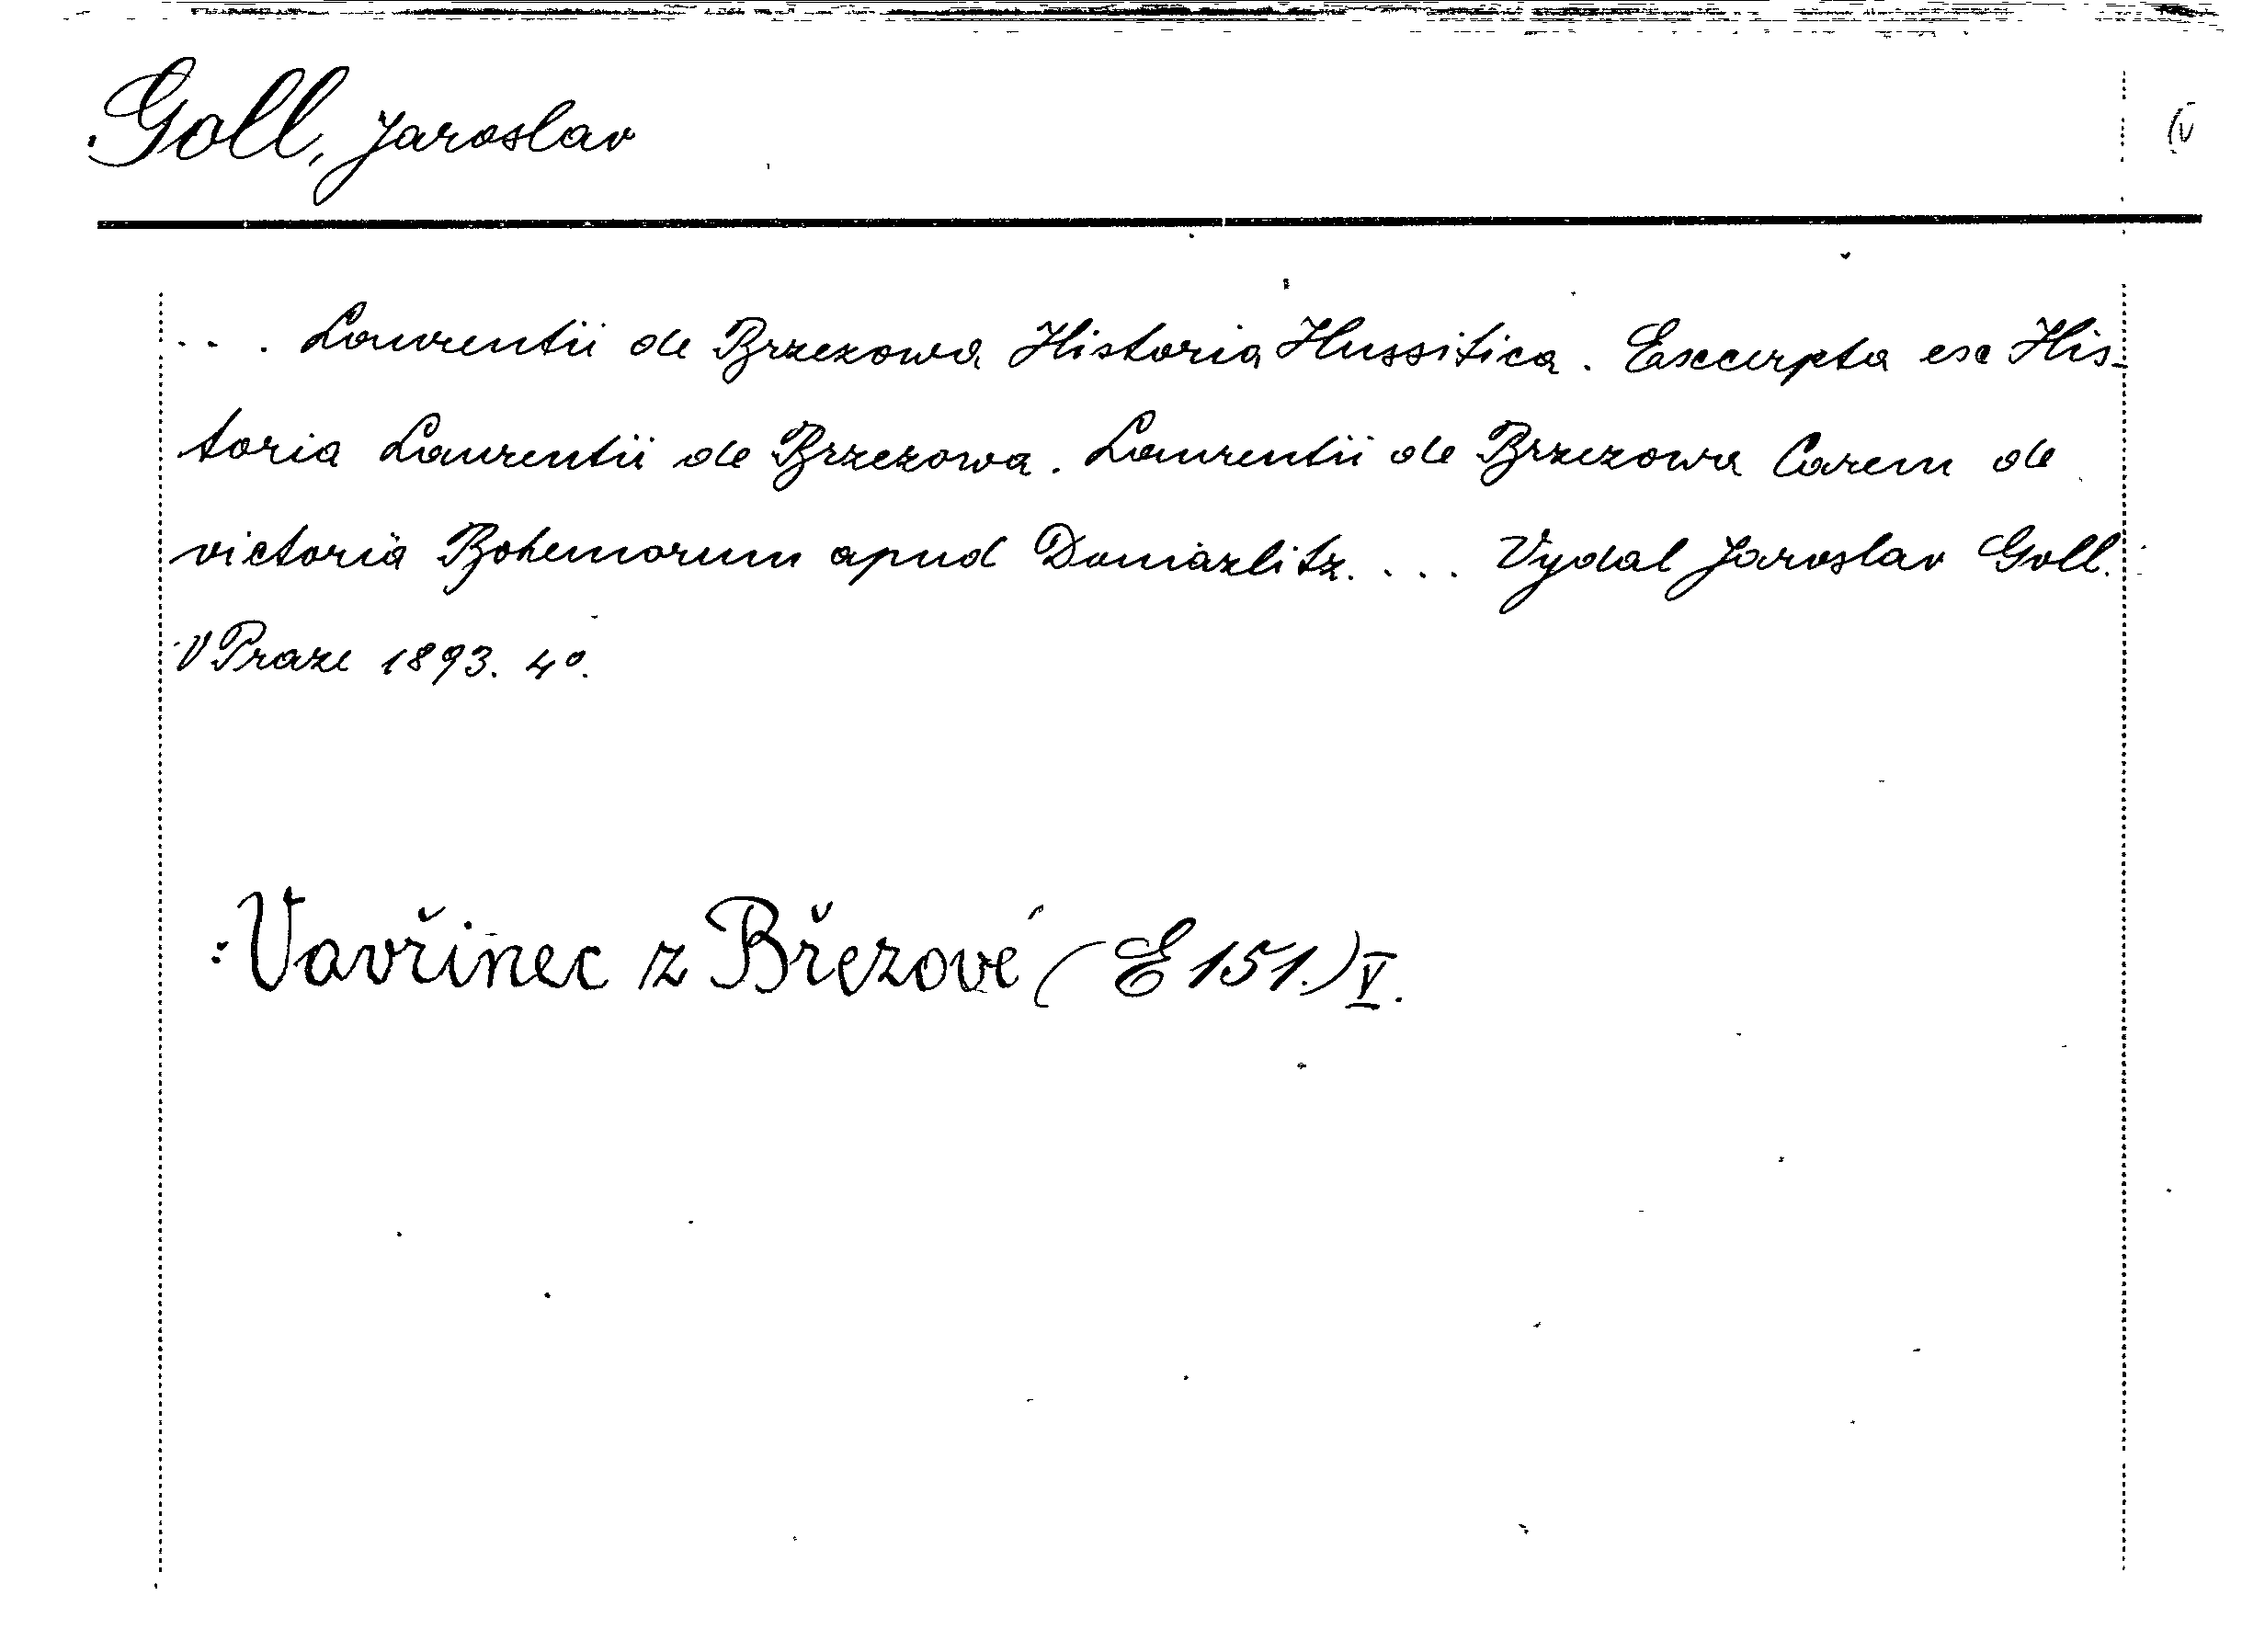 Goll, Jaroslav
... Laurentii de Brzezowa Historia Hussitica. Excerpta ex His-
toria Laurentii de Brzezowa. Laurentii de Brzezowa Carem de
victoria Bohemorum apud Domazlitz.... Vydal Jaroslav Goll.
V Praze 1893. 4º.
: Vavřinec z Březové (E 151.) V.